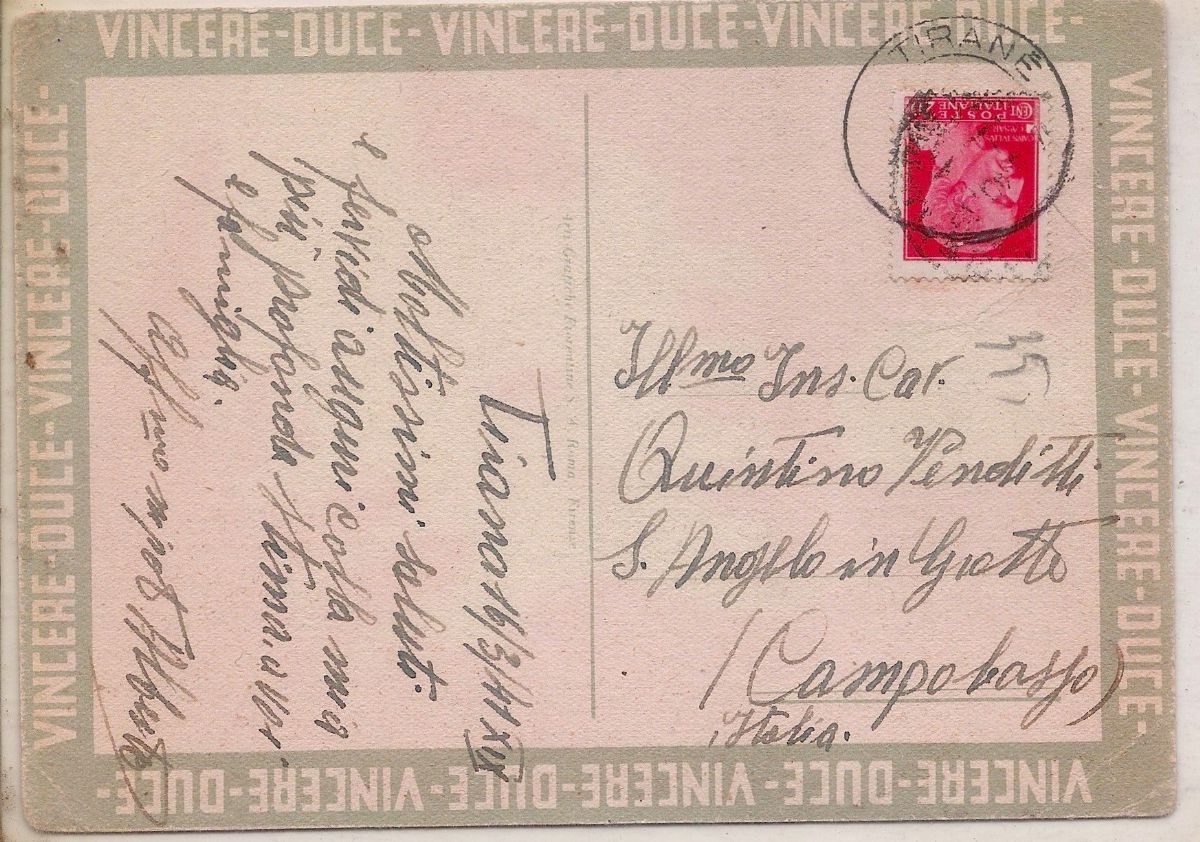 VINCERE-DUCE-VINCERE-DUCE-VINCERE-DUCE-
VINCERE-DUCE-VINCERE-DUCE-
VINCERE-DUCE-VINCERE-DUCE-VINCERE-DUCE-
VINCERE-DUCE-VINCERE-DUCE-
TIRANË
POSTE
ITALIANE
CENT
Tirana 16/3/41 XIX
Moltissimi saluti
e fervidi auguri colla mia
più profonda stima a voi
e famiglia.
Alberto
Illmo Ins. Cav.
Quintino Venditti
S. Angelo in Grotte
(Campobasso)
Italia.